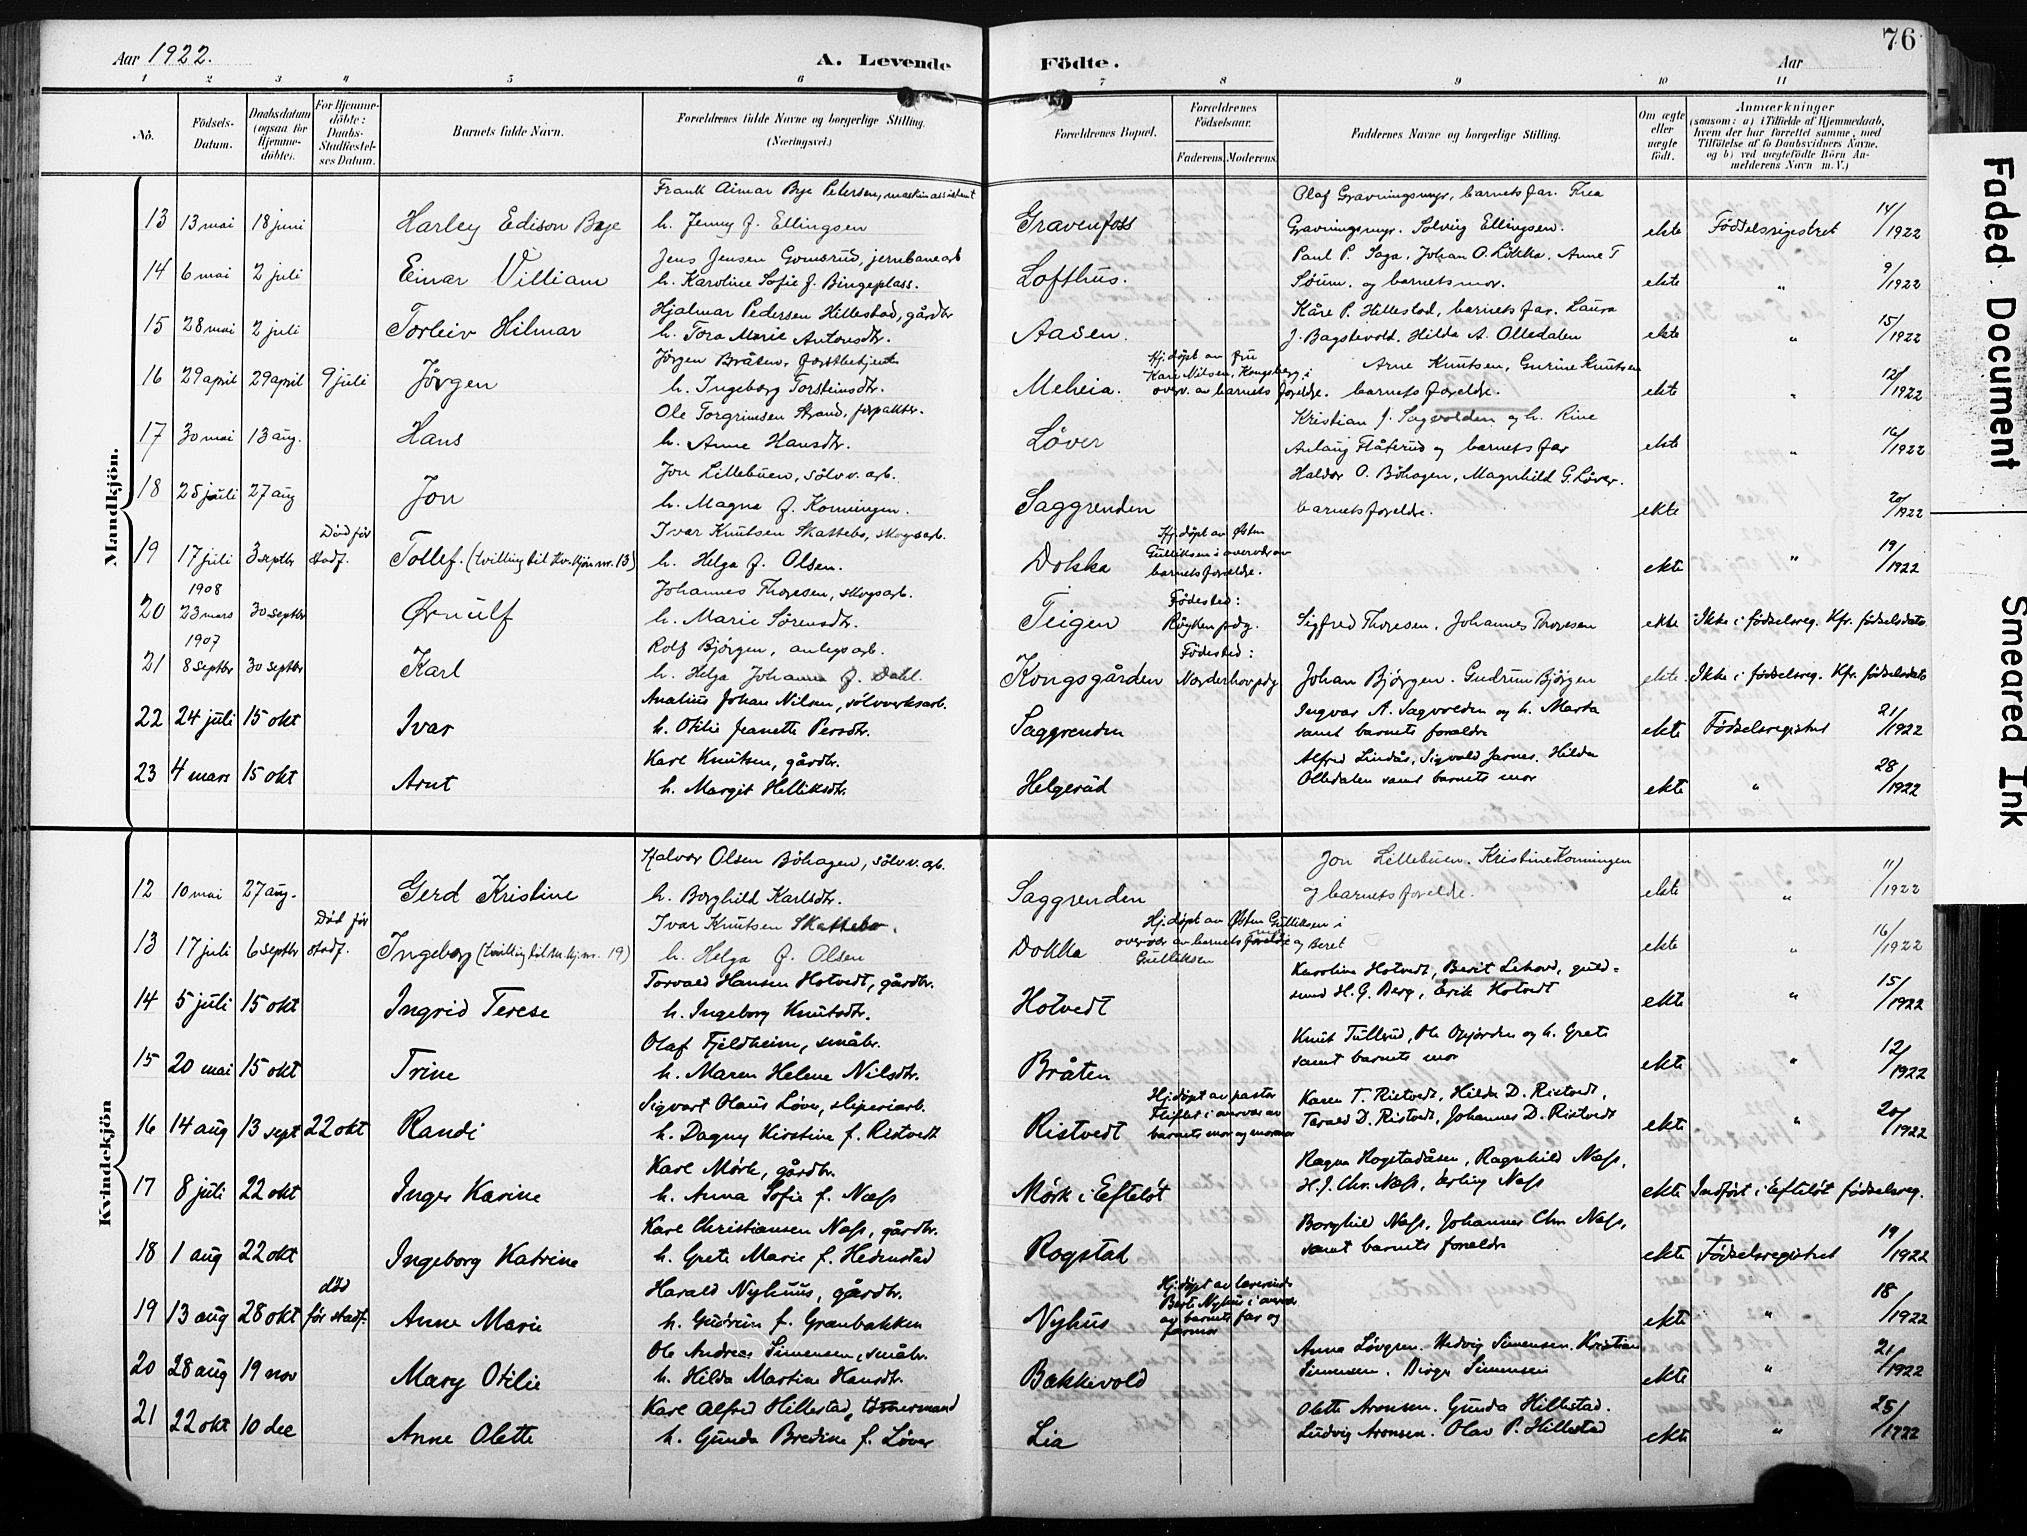 Aar 1922.
A. Levende
Födte.
Aar
76
1 2 3 4 5 6 7 8 9 10 11
No.
Födsels-Datum.
Daabsdatum (ogsaa for Hjemme-döbte).
For Hjemme-döbte: Daabs-Stadfæstel-ses Datum.
Barnets fulde Navn.
Forældrenes fulde Navne og borgerlige Stilling. (Næringsvei.)
Forældrenes Bopæl.
Forældrenes Födselsaar.
Faderens.
Moderens.
Faddernes Navne og borgerlige Stilling.
Om ægte eller uægte födt.
Anmærkninger
(saasom: a) i Tilfælde af Hjemmedaab, hvem der har forrettet samme, med Tilföielse af to Daabsvidners Navne, og b) ved uægtefödte Börn An-melderens Navn m. V.)
Mandkjön.
13 13 mai 18 juni Harley Edison Bye
Frank Aimar Bye Petersen, maskinassistent
h. Jenny f. Ellingsen
Gravenfoss
Olaf Gravningsmyr, barnets far. Thea
Gravningsmyr. Solveig Ellingsen.
ekte Födselsregistret 14/1922
14 6 mai 2 juli Einar Villiam
Jens Jensen Gomsrud, jernbanearb
h. Karoline Sofie f. Bingeplass.
Lofthus.
Paul P. Saga, Johan O. Løkka. Anne T
Søum. og barnets mor.
ekte " 9/1922
15 28 mai 2 juli Torleiv Hilmar
Hjalmar Pedersen Hillestad, gårdbr
h. Tora Marie Antonsdtr.
Aasen.
Kåre P. Hillestad, barnets far. Laura
J. Bagstevold. Hilda A. Olledalen
ekte " 15/1922
16 29 april 29 april 9 juli Jörgen
Jörgen Bråten, forstbetjent
h. Ingeborg Torsteinsdtr.
Meheia.
Hj. döpt av fru
Kari Nilsen, Kongsberg, i
overv. av barnets foreldre.
Arne Knutsen, Gurine Knutsen
barnets foreldre.
ekte " 12/1922
17 30 mai 13 aug. Hans
Ole Torgrimsen Strand, forpakter.
h. Anne Hansdtr.
Løver
Kristian J. Sagvolden og h. Rine
Aslaug Flåterud og barnets far
ekte " 16/1922
18 25 juli 27 aug Jon
Jon Lillebuen, sölvv. arb.
h. Magna f. Korningen.
Saggrenden
Haldor O. Böhagen, Magnhild G. Løver.
barnets foreldre.
ekte 20/1922
19 17 juli 3 septbr Död för stadf. Tollef. (tvilling til kv.kjön nr. 13)
Ivar Knutsen Skattebo, skogsarb.
h. Helga f. Olsen.
Dokka
Hj. döpt av Østen
Gulliksen i overvær av
barnets foreldre.
ekte " 19/1922
20 1908 23 mars 30 septbr Ørnulf
Johannes Thoresen, skogsarb.
h. Marie Sörensdtr.
Teigen
Födested:
Röyken pdg.
Sigfred Thoresen, Johannes Thoresen
ekte Ikke i födselsreg. Kfr. födselsdato
21 1907 8 septbr 30 septbr Karl
Rolf Bjørgen, anlegsarb.
h. Helga Johanne f. Dahl.
Kongsgården
Födested:
Norderhov pdg
Johan Bjørgen. Gudrun Bjørgen
ekte Ikke i födselsreg. Kfr. födselsdato
22 24 juli 15 okt Ivar
Analius Johan Nilsen, sölvverksarb.
h. Otilie Jeanette Persdtr.
Saggrenden
Ingvar A. Sagvolden og h. Marta
samt barnets foreldre
ekte Födselsregistret 21/1922
23 4 mars 15 okt Arnt
Karl Knutsen, gårdbr.
h. Margit Helliksdtr.
Helgeråd
Alfred Lindås, Sigvald Jarnes. Hilda
Olledalen samt barnets mor
ekte " 28/1922
Kvindekjön
12 10 mai 27 aug. Gerd Kristine
Halvor Olsen Böhagen, sölvv. arb.
h. Borghild Karlsdtr.
Saggrenden
Jon Lillebuen. Kristine Korningen
og barnets foreldre.
ekte " 11/1922
13 17 juli 6 septbr Död för stadf. Ingeborg (tvilling til m.kj. nr. 19)
Ivar Knutsen Skattebo.
h. Helga f. Olsen
Dokka
Hj. döpt av Østen Gulliksen i
overvær av barnets mor og Beret
Gulliksen
ekte " 16/1922
14 5 juli 15 okt Ingrid Terese
Torvald Hansen Hotvedt, gårdbr.
h. Ingeborg Knutsdtr.
Hotvedt
Karoline Hotvedt, Berit Lehovd, guld-
smed H. G. Berg, Erik Hotvedt
ekte " 15/1922
15 20 mai 15 okt Trine
Olaf Fjeldheim, småbr.
h. Maren Helene Nilsdtr.
Bråten
Knut Tullerud, Ole Opjorden og h. Grete
samt barnets mor
ekte " 12/1922
16 14 aug 13 sept 22 okt Randi
Sigvart Olaus Løver, sliperiarb.
h. Dagny Kirstine f. Ristvedt
Ristvedt
Hj. döpt av pastor
Fliflet i overvær av
barnets mor og mormor
Karen T. Ristvedt, Hilda D. Ristvedt,
Torvald D. Ristvedt, Johannes D. Ristvedt
ekte " 20/1922
17 8 juli 22 okt Inger Karine
Karl Mørk, gårdbr.
h. Anna Sofie f. Næss
Mørk i Efteløt
Ragna Rogstadåsen, Ragnhild Næss,
H. J. Chr. Næss, Erling Næss
ekte Indfört i Efteløt födselsreg.
18 1 aug 22 okt Ingeborg Katrine
Karl Christiansen Næss, gårdbr.
h. Grete Marie f. Hedenstad
Rogstad
Borghild Næss, Johannes Chr. Næss,
samt barnets foreldre
ekte Födselsregistret 19/1922
19 13 aug 28 okt död för stadf. Anne Marie
Harald Nyhuus, gårdbr.
h. Gudrun f. Granbakken
Nyhus
Hj. döpt av lærerinde
Berte Nyhus i overvær
av barnets far og
farmor
ekte " 18/1922
20 28 aug 19 nov Mary Otilie
Ole Andreas Simensen, småbr.
h. Hilda Martine Hansdtr.
Bakkevold
Anna Lövgren. Hedvig Simensen. Kristian
Simensen. Birger Simensen
ekte " 21/1922
21 22 okt 10 dec Anne Olette
Karl Alfred Hillestad, tömmermand
h. Gunda Bredine f. Løver
Lia
Olette Aronsen. Gunda Hillestad.
Ludvig Aronsen. Olav P. Hillestad
ekte " 25/1922
Faded Document
Smeared Ink